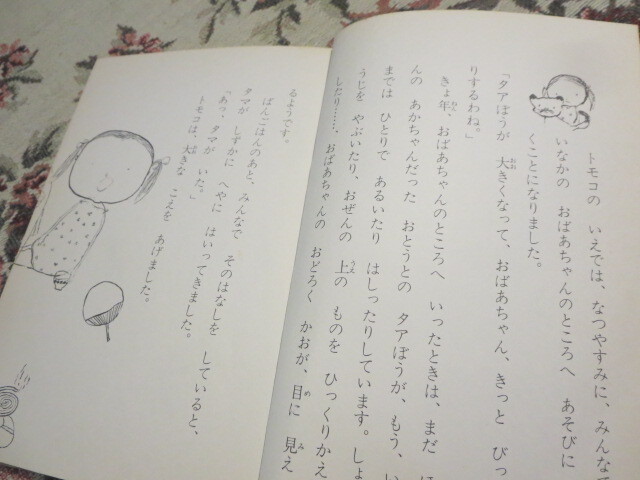 トモコの いえでは、なつやすみに、みんなで
いなかの おばあちゃんのところへ あそびに
くことになりました。
「タアぼうが 大きくなって、おばあちゃん、きっと びっ
りするわね。」
きょ年、おばあちゃんのところへ いったときは、まだ
んの あかちゃんだった おとうとの タアぼうが、もう、
までは ひとりで あるいたり はしったりしています。しょ
うじを やぶいたり、おぜんの 上の ものを ひっくりかえ
したり……、おばあちゃんの おどろく かおが、目に 見え
るようです。
ばんごはんのあと、みんなで そのはなしを していると、
タマが しずかに へやに はいってきました。
「あっ、タマが いた。」
トモコは、大きな こえを あげました。